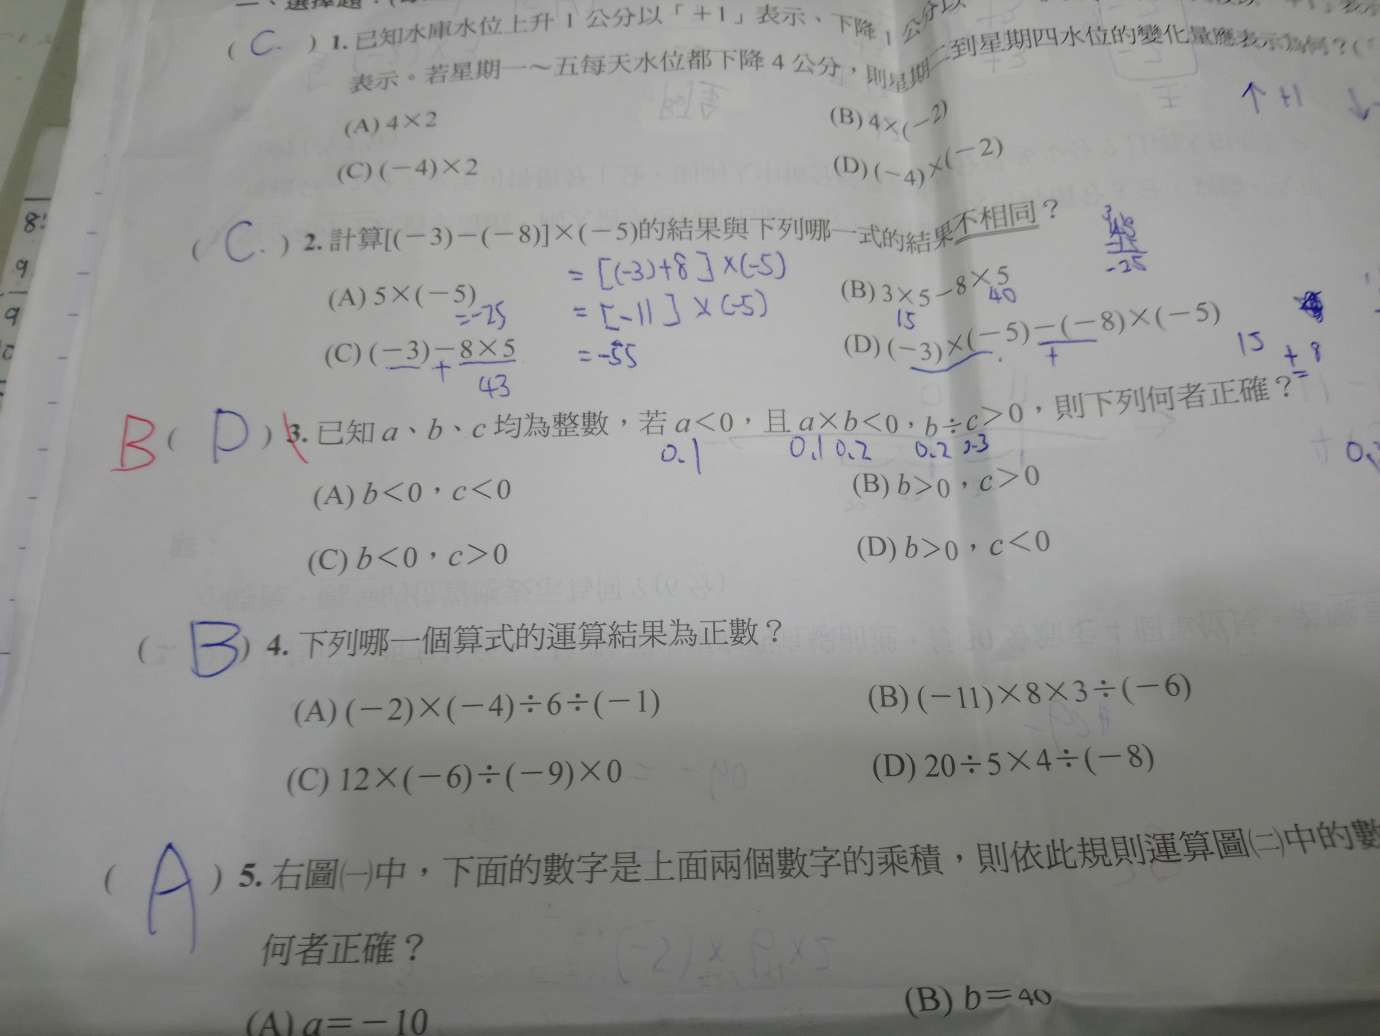 一、選擇題：
( C. ) 1. 已知水庫水位上升 1 公分以「+1」表示、下降 1 公分以
表示。若星期一～五每天水位都下降 4 公分，則星期二到星期四水位的變化量應表示為何？(
↑ +1 ↓
(A) 4×2 (B) 4×(-2)
(C) (-4)×2 (D) (-4)×(-2)
( C. ) 2. 計算[(-3)-(-8)]×(-5)的結果與下列哪一式的結果不相同？
= [(-3)+8]×(-5)
(A) 5×(-5) (B) 3×5-8×5
=-25 = [-11]×(-5) 15 40
(C) (-3)-8×5 (D) (-3)×(-5)-(-8)×(-5)
+ 43 =-55 + 15 + 8
-25
B ( D ) 3. 已知 a、b、c 均為整數，若 a<0，且 a×b<0，b÷c>0，則下列何者正確？
0.1 0.1 0.2 0.2
(A) b<0，c<0 (B) b>0，c>0
(C) b<0，c>0 (D) b>0，c<0
( B ) 4. 下列哪一個算式的運算結果為正數？
(A) (-2)×(-4)÷6÷(-1) (B) (-11)×8×3÷(-6)
(C) 12×(-6)÷(-9)×0 (D) 20÷5×4÷(-8)
( A ) 5. 右圖㈠中，下面的數字是上面兩個數字的乘積，則依此規則運算圖㈡中的數
何者正確？
(A) a=-10 (B) b=40